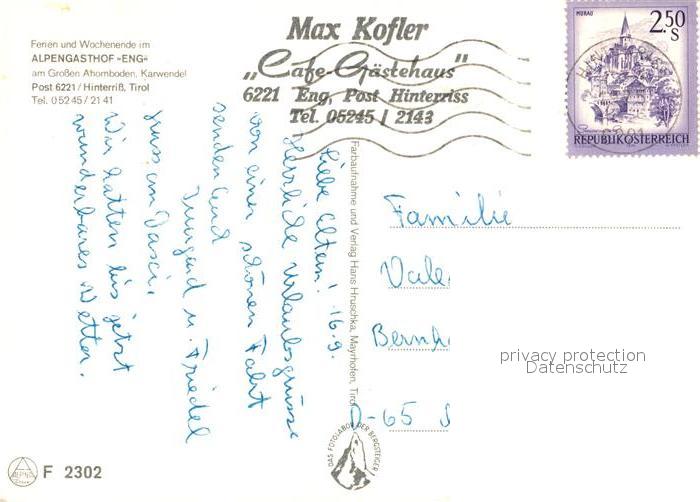 Ferien und Wochenende im
ALPENGASTHOF »ENG«
am Großen Ahornboden, Karwendel
Post 6221 / Hinterriß, Tirol
Tel. 0 52 45 / 21 41
Max Kofler
„Cafe-Gästehaus"
6221 Eng, Post Hinterriss
Tel. 05245 / 2143
MURAU
2.50
S
REPUBLIK ÖSTERREICH
16.9.
Liebe Eltern!
Herrliche Urlaubsgrüsse
von einer schönen Fahrt
senden Euch
Irmgard u. Friedel
Gruss an
Wir hatten bis jetzt
wunderbares Wetter.
Farbaufnahme und Verlag Hans Hruschka, Mayrhofen, Tirol
Familie
Vale
Bernh
D-65 S
privacy protection
Datenschutz
DAS FOTOLABOR DER BERGSTEIGER
ALPNA
F 2302